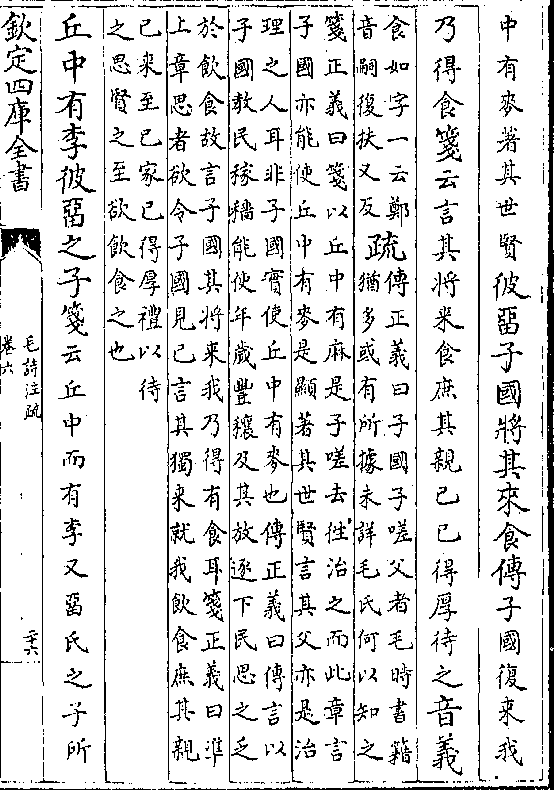 中有麥著其世賢彼留子國將其來食傳子國復來我
乃得食箋云言其將來食庶其親已已得厚待之音義
食如字一云鄭
音嗣復扶又反
疏
傳正義曰子國子嗟父者毛時書籍
猶多或有所據未詳毛氏何以知之
箋正義曰箋以丘中有麻是子嗟去徃治之而此章言
子國亦能使丘中有麥是顯著其世賢言其父亦是治
理之人耳非子國實使丘中有麥也傳正義曰傳言以
子國敎民稼穡能使年歲豐穰及其放逐下民思之乏
於飲食故言子國其將來我乃得有食耳箋正義曰準
上章思者欲令子國見已言其獨來就我飲食庶其親
已來至已家已得厚禮以待
之思賢之至欲飲食之也
丘中有李彼留之子箋云丘中而有李又留氏之子所
欽定四庫全書
毛詩注疏
卷六
三十六